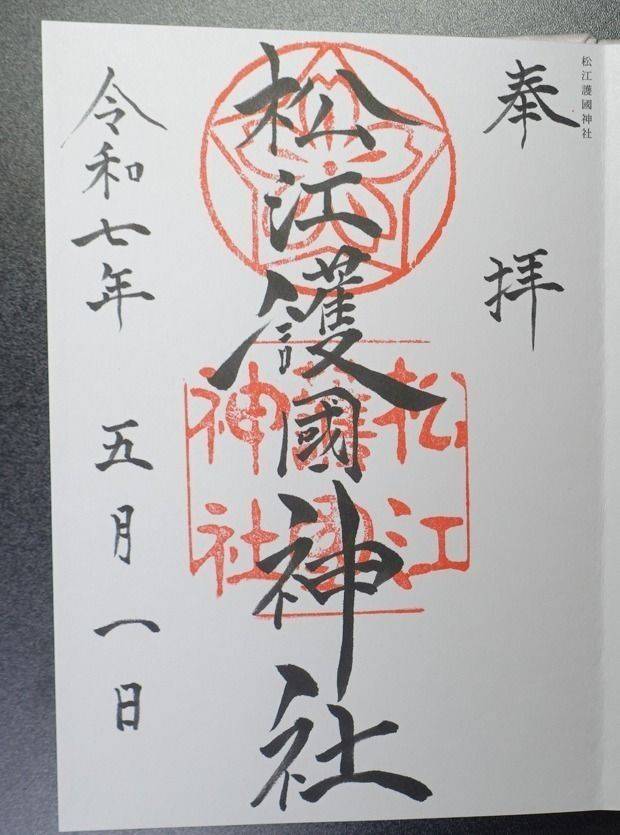 松江護國神社
奉拝
松江護國神社
松江
護國
神社
令和七年 五月一日